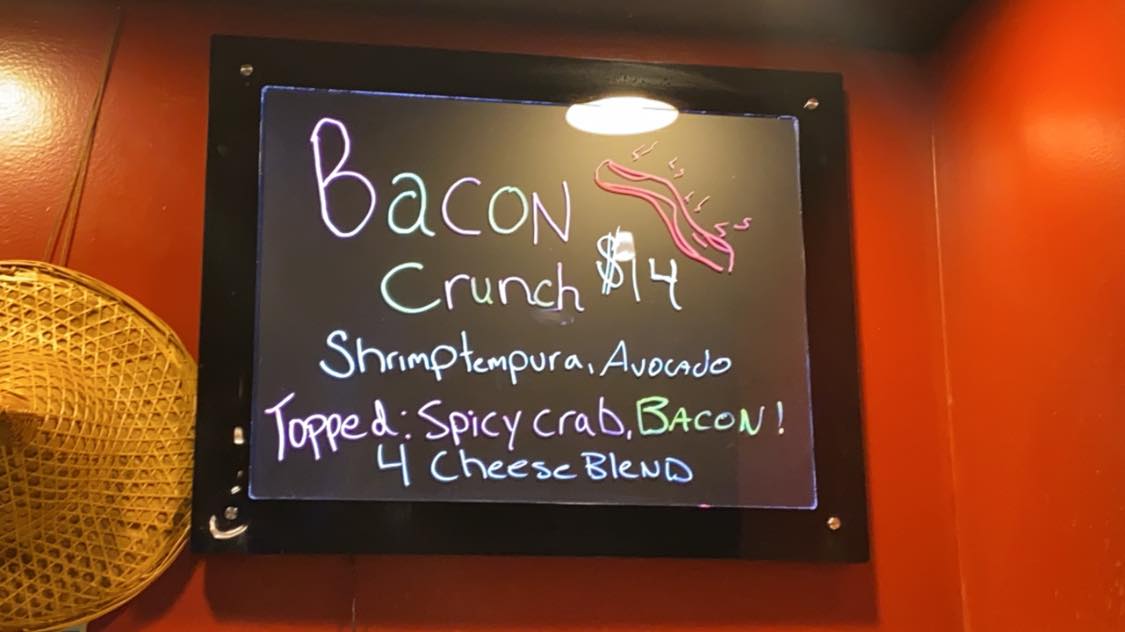 Bacon
Crunch $14
Shrimp tempura, Avocado
Topped: Spicy crab, BACON!
4 Cheese Blend